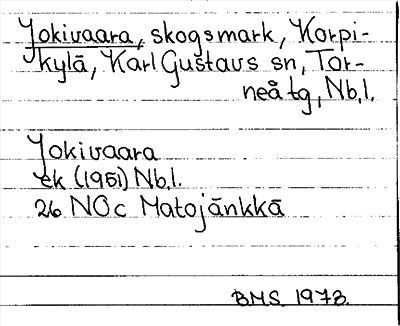 Jokivaara, skogsmark, Korpi-
kylä, Karl Gustavs sn, Tor-
neå tg, Nb.l.
Jokivaara
ek (1951) Nb.l.
26 NOc Matojänkkä
BMS 1973.